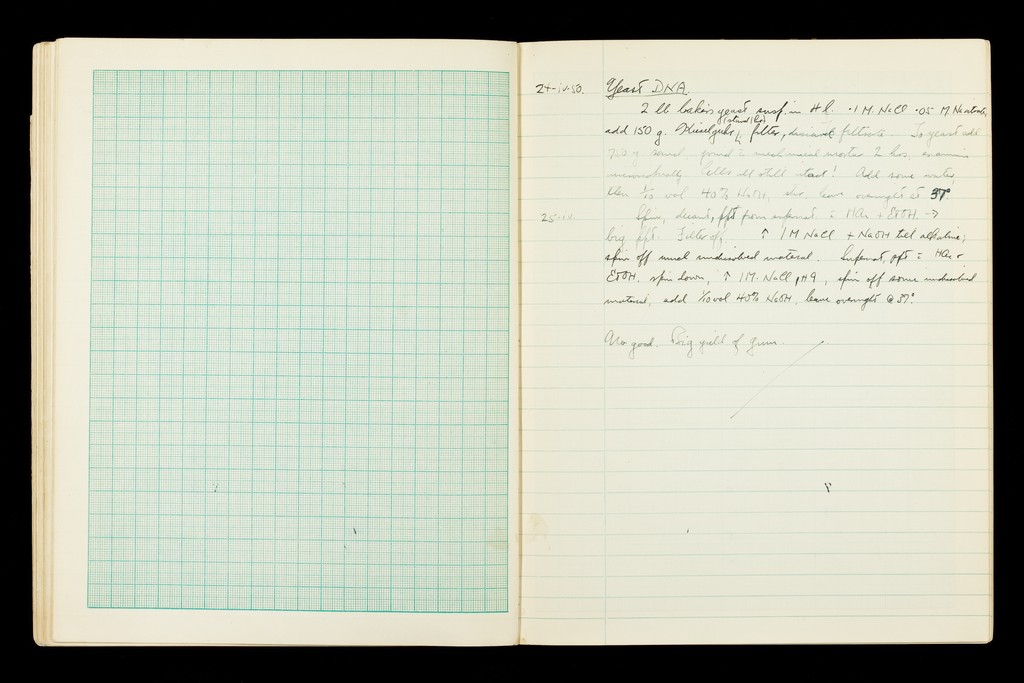 24-iv-50. Yeast DNA.
2 lb bakers yeast susp. in 4 l. .1 M NaCl .05 M Na citrate,
(stand 1 hr)
add 150 g. Kieselguhr, filter, discard filtrate. To yeast add
750 g sand, grind = mechanical mortar 2 hrs, examine
microscopically. Cells all still intact! Add some water,
then 1/10 vol 40% NaOH, stir, leave overnight at 37°.
25-iv. Spin, decant, ppt from supernat = HAc + EtOH. →
big ppt. Filter off, ↑ 1M NaCl + NaOH till alkaline,
spin off small undissolved material. Supernat, ppt = HAc +
EtOH, spin down, ↑ 1M. NaCl, pH 9, spin off some undissolved
material, add 1/10 vol 40% NaOH, leave overnight @ 37°.
No good. Big yield of gum.